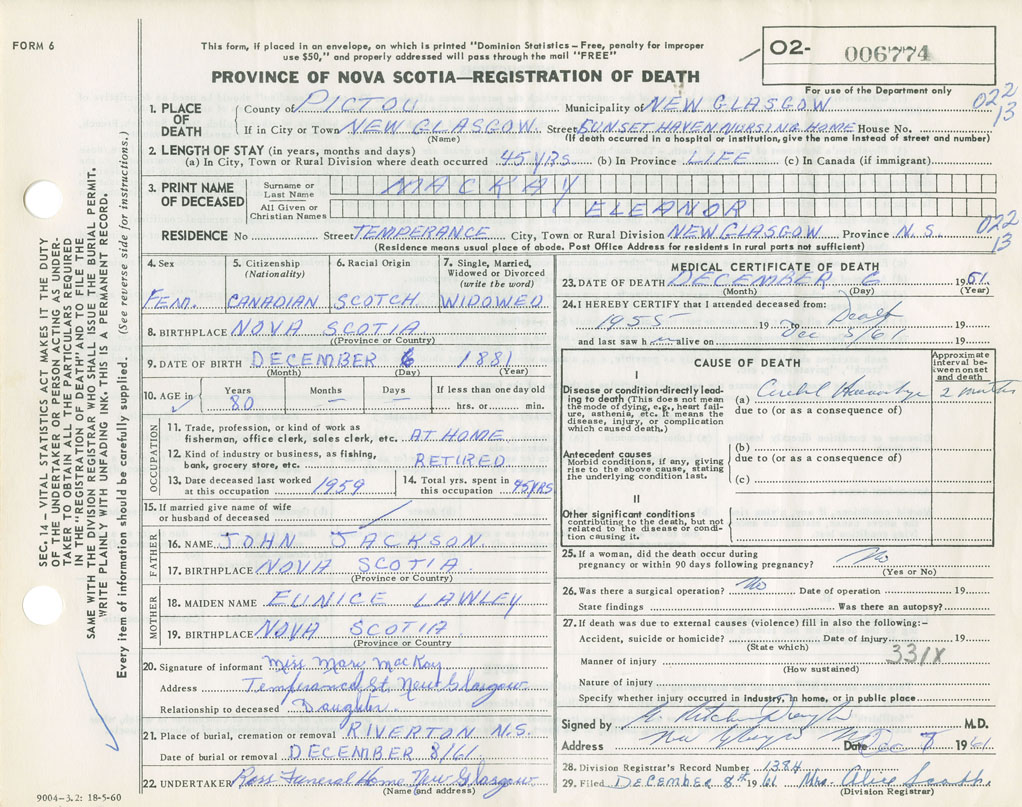 FORM 6
This form, if placed in an envelope, on which is printed "Dominion Statistics – Free, penalty for improper
use $50," and properly addressed will pass through the mail "FREE"
PROVINCE OF NOVA SCOTIA—REGISTRATION OF DEATH
O2- 006774
For use of the Department only
022
13
1. PLACE OF DEATH County of PICTOU Municipality of NEW GLASGOW
If in City or Town NEW GLASGOW Street SUNSET HAVEN NURSING HOME House No.
(Name) (If death occurred in a hospital or institution, give the name instead of street and number)
2. LENGTH OF STAY (in years, months and days)
(a) In City, Town or Rural Division where death occurred 45 YRS (b) In Province LIFE (c) In Canada (if immigrant)
3. PRINT NAME OF DECEASED Surname or Last Name MACKAY
All Given or Christian Names ELEANOR
RESIDENCE No Street TEMPERANCE City, Town or Rural Division NEW GLASGOW Province N.S.
022
13
(Residence means usual place of abode. Post Office Address for residents in rural parts not sufficient)
4. Sex 5. Citizenship (Nationality) 6. Racial Origin 7. Single, Married, Widowed or Divorced (write the word)
FEM. CANADIAN SCOTCH WIDOWED
8. BIRTHPLACE NOVA SCOTIA
(Province or Country)
9. DATE OF BIRTH DECEMBER 6 1881
(Month) (Day) (Year)
10. AGE in Years Months Days If less than one day old
80 — — hrs. or min.
OCCUPATION
11. Trade, profession, or kind of work as
fisherman, office clerk, sales clerk, etc. AT HOME
12. Kind of industry or business, as fishing,
bank, grocery store, etc. RETIRED
13. Date deceased last worked at this occupation 1959 14. Total yrs. spent in this occupation 45 YRS
15. If married give name of wife
or husband of deceased
FATHER
16. NAME JOHN JACKSON
17. BIRTHPLACE NOVA SCOTIA
(Province or Country)
MOTHER
18. MAIDEN NAME EUNICE LAWLEY
19. BIRTHPLACE NOVA SCOTIA
(Province or Country)
20. Signature of informant Miss Mary MacKay
Address Temperance St. New Glasgow
Relationship to deceased Daughter
21. Place of burial, cremation or removal RIVERTON N.S.
Date of burial or removal DECEMBER 8/61
22. UNDERTAKER Ross Funeral Home New Glasgow
(Name and address)
9004–3.2: 18-5-60
MEDICAL CERTIFICATE OF DEATH
23. DATE OF DEATH DECEMBER 6 1961
(Month) (Day) (Year)
24. I HEREBY CERTIFY that I attended deceased from:
1955 19 to Death 19
and last saw h alive on Dec 5/61 19
CAUSE OF DEATH
Approximate interval between onset and death
I
Disease or condition directly leading to death (This does not mean the mode of dying, e.g., heart failure, asthenia, etc. It means the disease, injury, or complication which caused death.)
(a) 2 months
due to (or as a consequence of)
Antecedent causes
Morbid conditions, if any, giving rise to the above cause, stating the underlying condition last.
(b)
due to (or as a consequence of)
(c)
II
Other significant conditions
contributing to the death, but not related to the disease or condition causing it.
25. If a woman, did the death occur during
pregnancy or within 90 days following pregnancy? No
(Yes or No)
26. Was there a surgical operation? No Date of operation 19
State findings Was there an autopsy?
27. If death was due to external causes (violence) fill in also the following:–
Accident, suicide or homicide? Date of injury 19
(State which)
331X
Manner of injury
(How sustained)
Nature of injury
Specify whether injury occurred in industry, in home, or in public place
Signed by M.D.
Address New Glasgow Date Dec 8 1961
28. Division Registrar's Record Number 1384
29. Filed DECEMBER 8th 1961 Mrs. Alice
(Division Registrar)
SEC. 14 – VITAL STATISTICS ACT MAKES IT THE DUTY
OF THE UNDERTAKER OR PERSON ACTING AS UNDER-
TAKER TO OBTAIN ALL THE PARTICULARS REQUIRED
IN THE "REGISTRATION OF DEATH" AND TO FILE THE
SAME WITH THE DIVISION REGISTRAR WHO SHALL ISSUE THE BURIAL PERMIT.
WRITE PLAINLY WITH UNFADING INK. THIS IS A PERMANENT RECORD.
Every item of information should be carefully supplied. (See reverse side for instructions.)